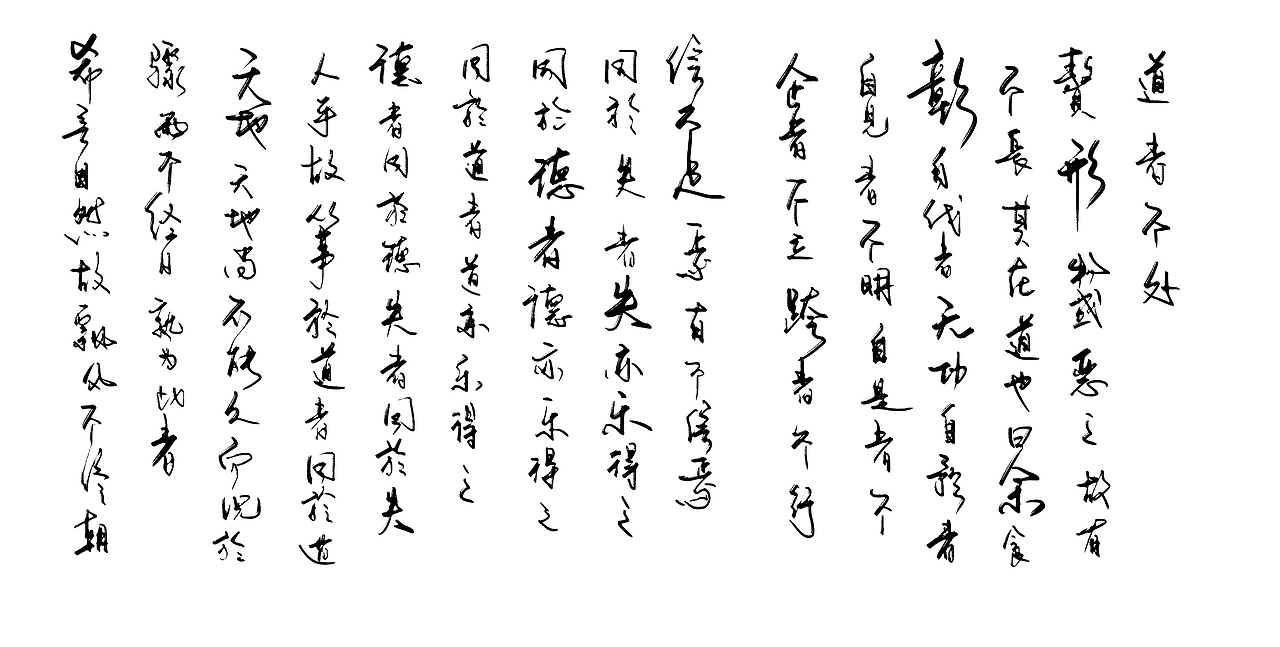 希言自然故飘风不终朝
骤雨不终日孰为此者
天地天地尚不能久而况於
人乎故从事於道者同於道
德者同於德失者同於失
同於道者道亦乐得之
同於德者德亦乐得之
同於失者失亦乐得之
信不足焉有不信焉
企者不立跨者不行
自见者不明自是者不
彰自伐者无功自矜者
不長其在道也曰余食
贅形物或恶之故有
道者不处